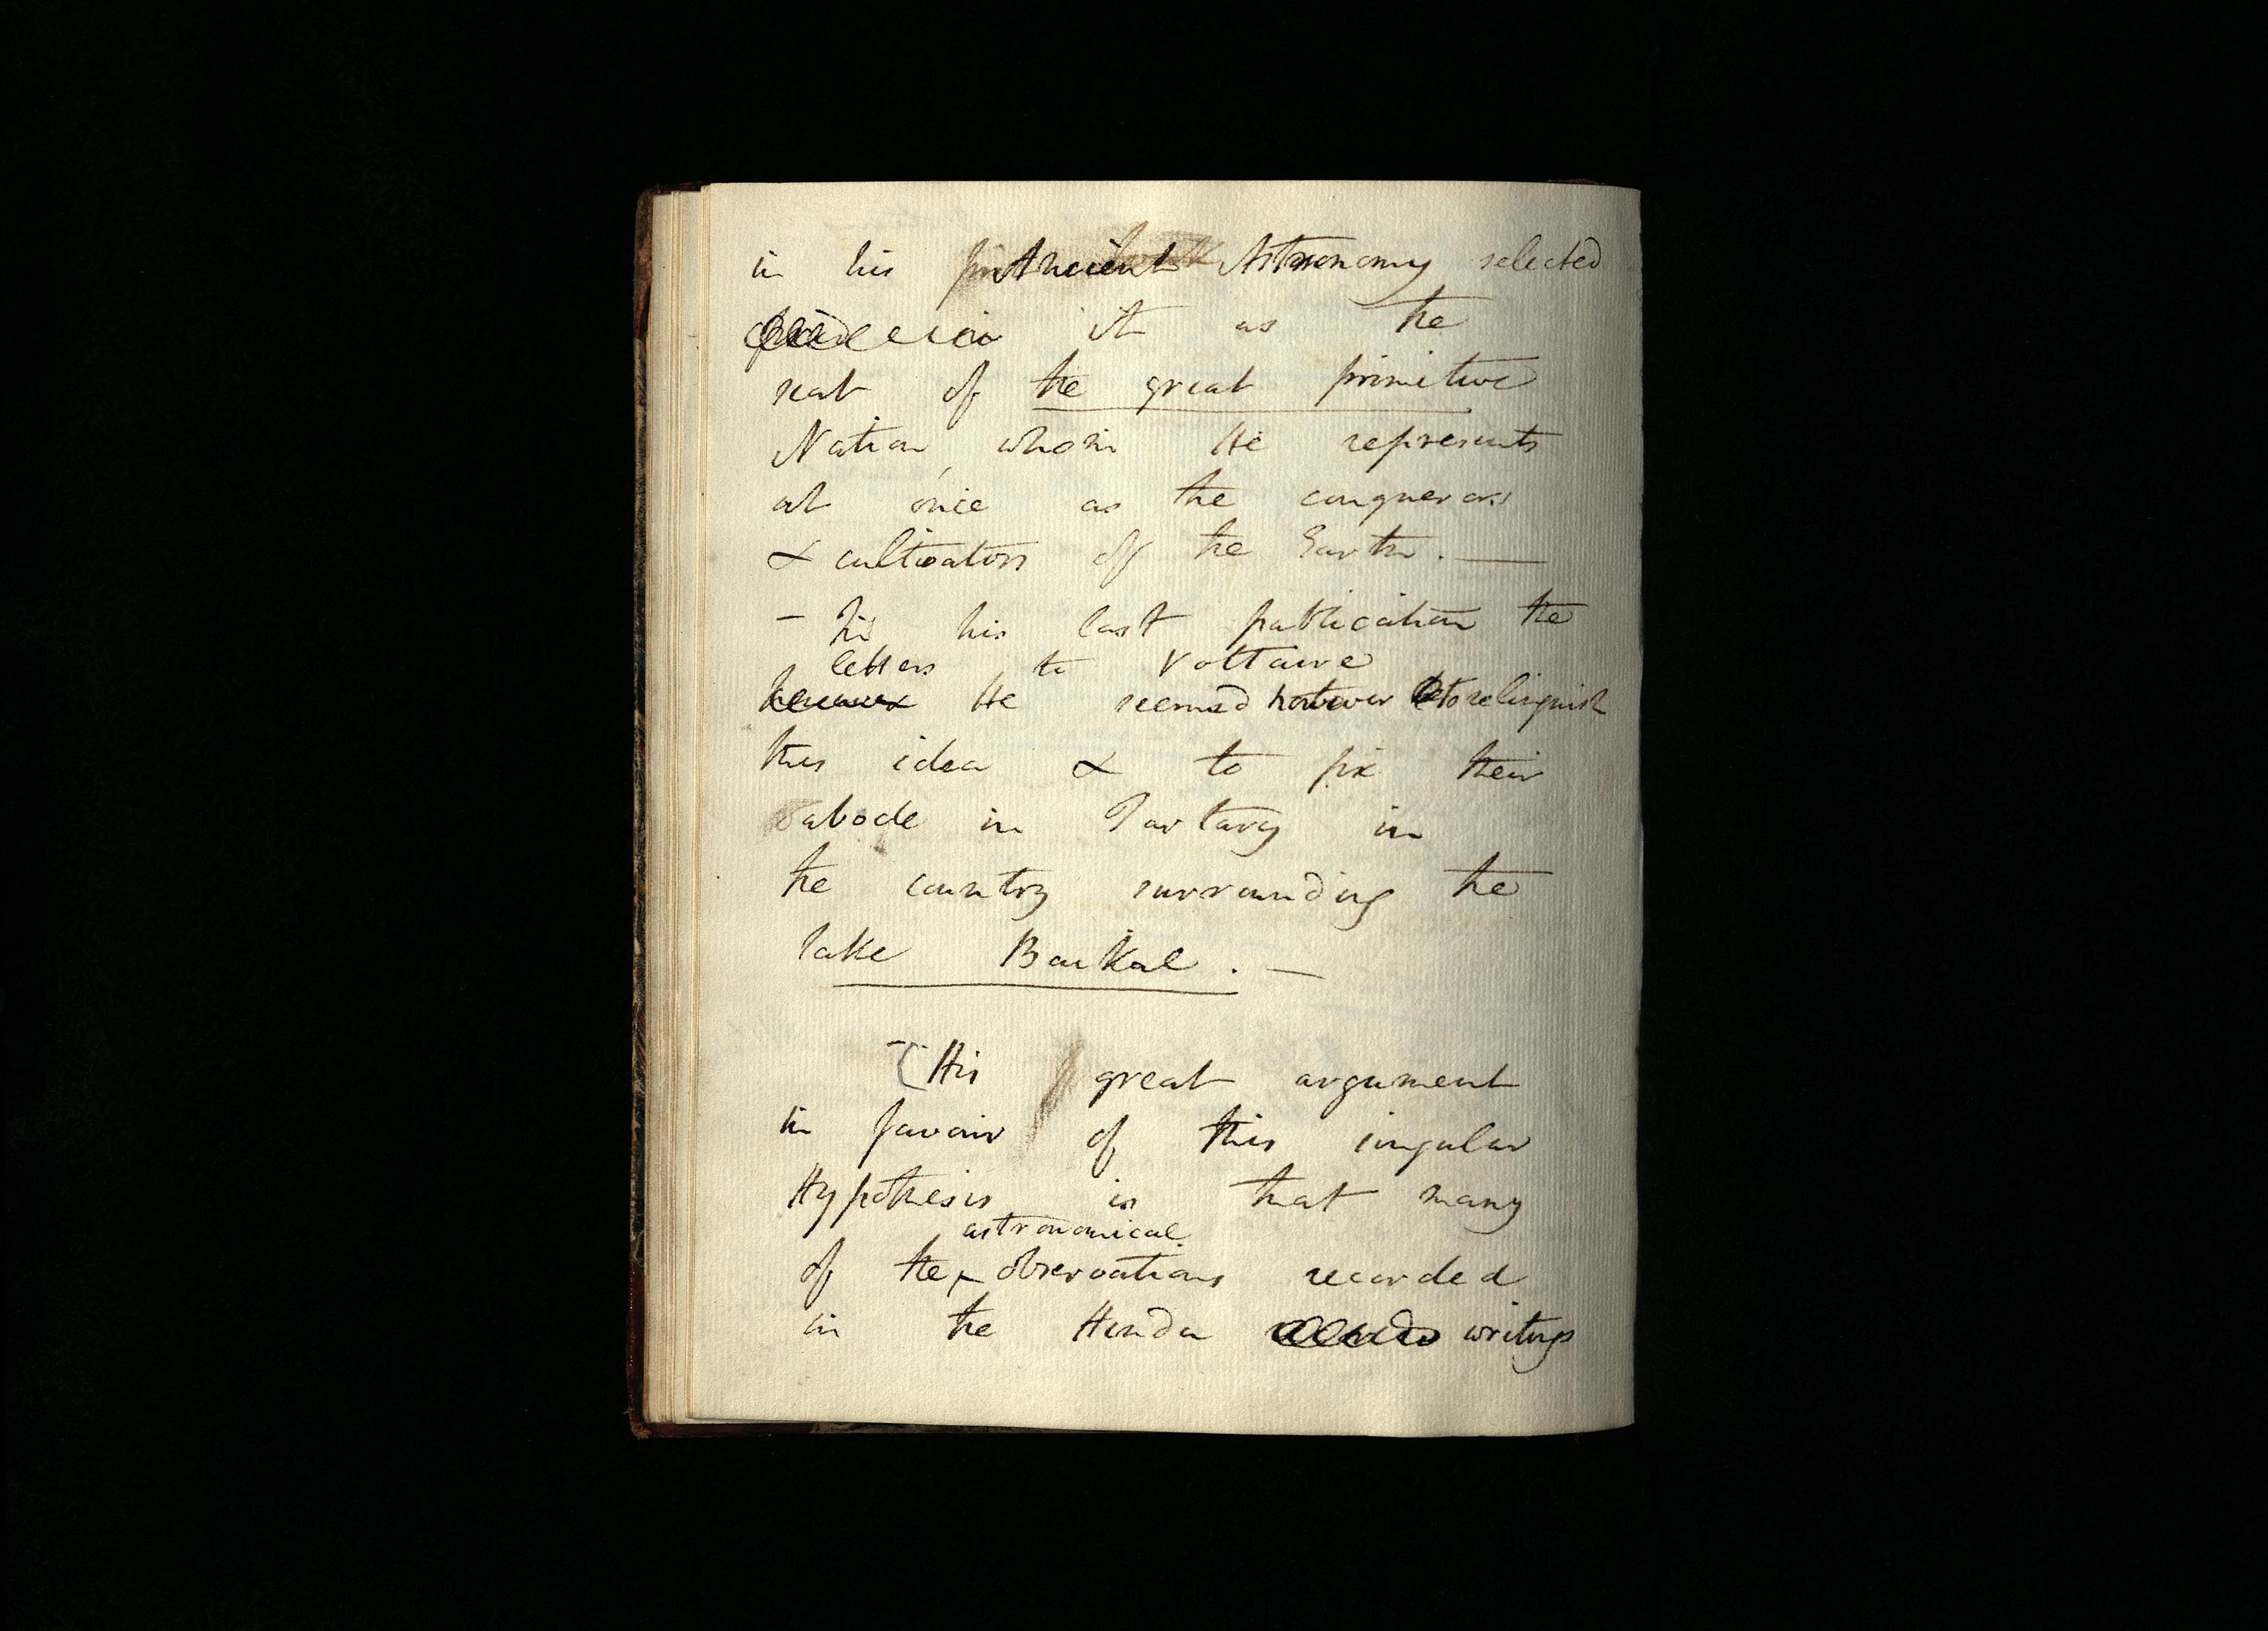 in his Ancient Astronomy selected
it as the
seat of the great primitive
Nation, whom He represents
at once as the conquerors
& cultivators of the Earth. —
— In his last publication the
letters to Voltaire
He seemed however to relinquish
this idea & to fix their
abode in Tartary in
the country surrounding the
lake Baikal. —
— His great argument
in favour of this singular
Hypothesis is that many
astronomical
of the observations recorded
in the Hindu writings